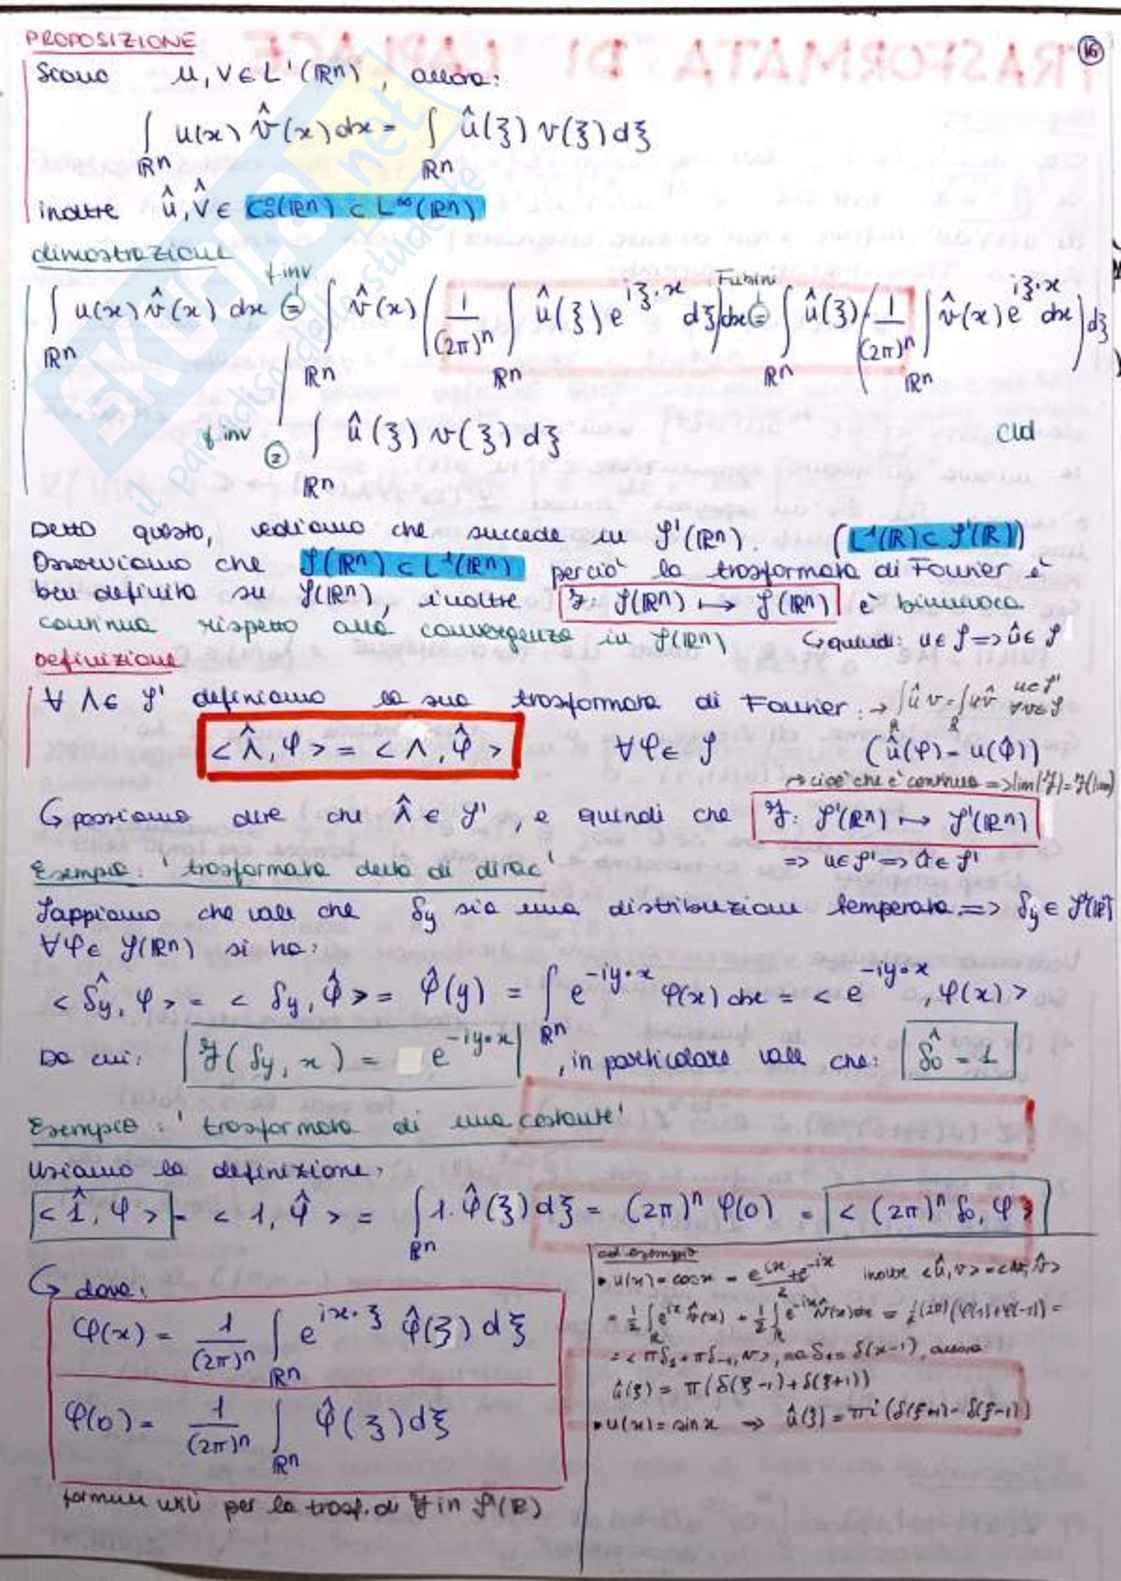 16
PROPOSIZIONE
Siano u, v ∈ L¹(ℝⁿ), allora:
∫_ℝⁿ u(x) v̂(x) dx = ∫_ℝⁿ û(ξ) v(ξ) dξ
inoltre û, v̂ ∈ C₀⁰(ℝⁿ) ⊂ L^∞(ℝⁿ)
dimostrazione
f inv Fubini
∫_ℝⁿ u(x) v̂(x) dx = ∫_ℝⁿ v̂(x) (1/(2π)ⁿ ∫_ℝⁿ û(ξ) e^{iξ·x} dξ) dx = ∫_ℝⁿ û(ξ) (1/(2π)ⁿ ∫_ℝⁿ v̂(x) e^{iξ·x} dx) dξ
f inv = ∫_ℝⁿ û(ξ) v(ξ) dξ cld
Detto questo, vediamo che succede in 𝒮'(ℝⁿ). (L¹(ℝ) ⊂ 𝒮'(ℝ))
Osserviamo che 𝒮(ℝⁿ) ⊂ L¹(ℝⁿ) perciò la trasformata di Fourier è
ben definita su 𝒮(ℝⁿ), inoltre ℱ: 𝒮(ℝⁿ) ↦ 𝒮(ℝⁿ) è biunivoca
continua rispetto alla convergenza in 𝒮(ℝⁿ) ↳ quindi: u ∈ 𝒮 => û ∈ 𝒮
Definizione
∀ Λ ∈ 𝒮' definiamo la sua trasformata di Fourier: → ∫_ℝ û v = ∫_ℝ u v̂ u∈𝒮' ∀v∈𝒮
< Λ̂, φ > = < Λ, φ̂ > ∀φ ∈ 𝒮 (û(φ) = u(φ̂))
→ cioè che è continua => lim(ℱ) = ℱ(lim)
↳ possiamo dire che Λ̂ ∈ 𝒮', e quindi che ℱ: 𝒮'(ℝⁿ) ↦ 𝒮'(ℝⁿ)
=> u ∈ 𝒮' => û ∈ 𝒮'
Esempio: 'trasformata delta di dirac'
Sappiamo che vale che δy sia una distribuzione temperata => δy ∈ 𝒮'(ℝⁿ)
∀φ ∈ 𝒮(ℝⁿ) si ha:
< δ̂y, φ > = < δy, φ̂ > = φ̂(y) = ∫_ℝⁿ e^{-iy·x} φ(x) dx = < e^{-iy·x}, φ(x) >
Da cui: ℱ(δy, x) = e^{-iy·x}, in particolare vale che: δ̂₀ = 1
Esempio: 'trasformata di una costante'
Usiamo la definizione:
< 1̂, φ > = < 1, φ̂ > = ∫_ℝⁿ 1·φ̂(ξ) dξ = (2π)ⁿ φ(0) = < (2π)ⁿ δ₀, φ >
↳ dove:
φ(x) = 1/(2π)ⁿ ∫_ℝⁿ e^{ix·ξ} φ̂(ξ) dξ
φ(0) = 1/(2π)ⁿ ∫_ℝⁿ φ̂(ξ) dξ
formule utili per la trasf. di ℱ in 𝒮'(ℝ)
ad esempio
• u(x) = cosx = (e^{ix} + e^{-ix})/2 inoltre <û, v> = <u, v̂>
= 1/2 ∫_ℝ e^{ix} v̂(x) + 1/2 ∫_ℝ e^{-ix} v̂(x) dx = 1/2 (2π)(φ(1)+φ(-1)) =
= < πδ₁ + πδ₋₁, v >, ma δ₁ = δ(x-1), allora
û(ξ) = π(δ(ξ-1) + δ(ξ+1))
• u(x) = sin x => û(ξ) = πi(δ(ξ+1) - δ(ξ-1))
SKUOLA.net
il paradiso dello studente